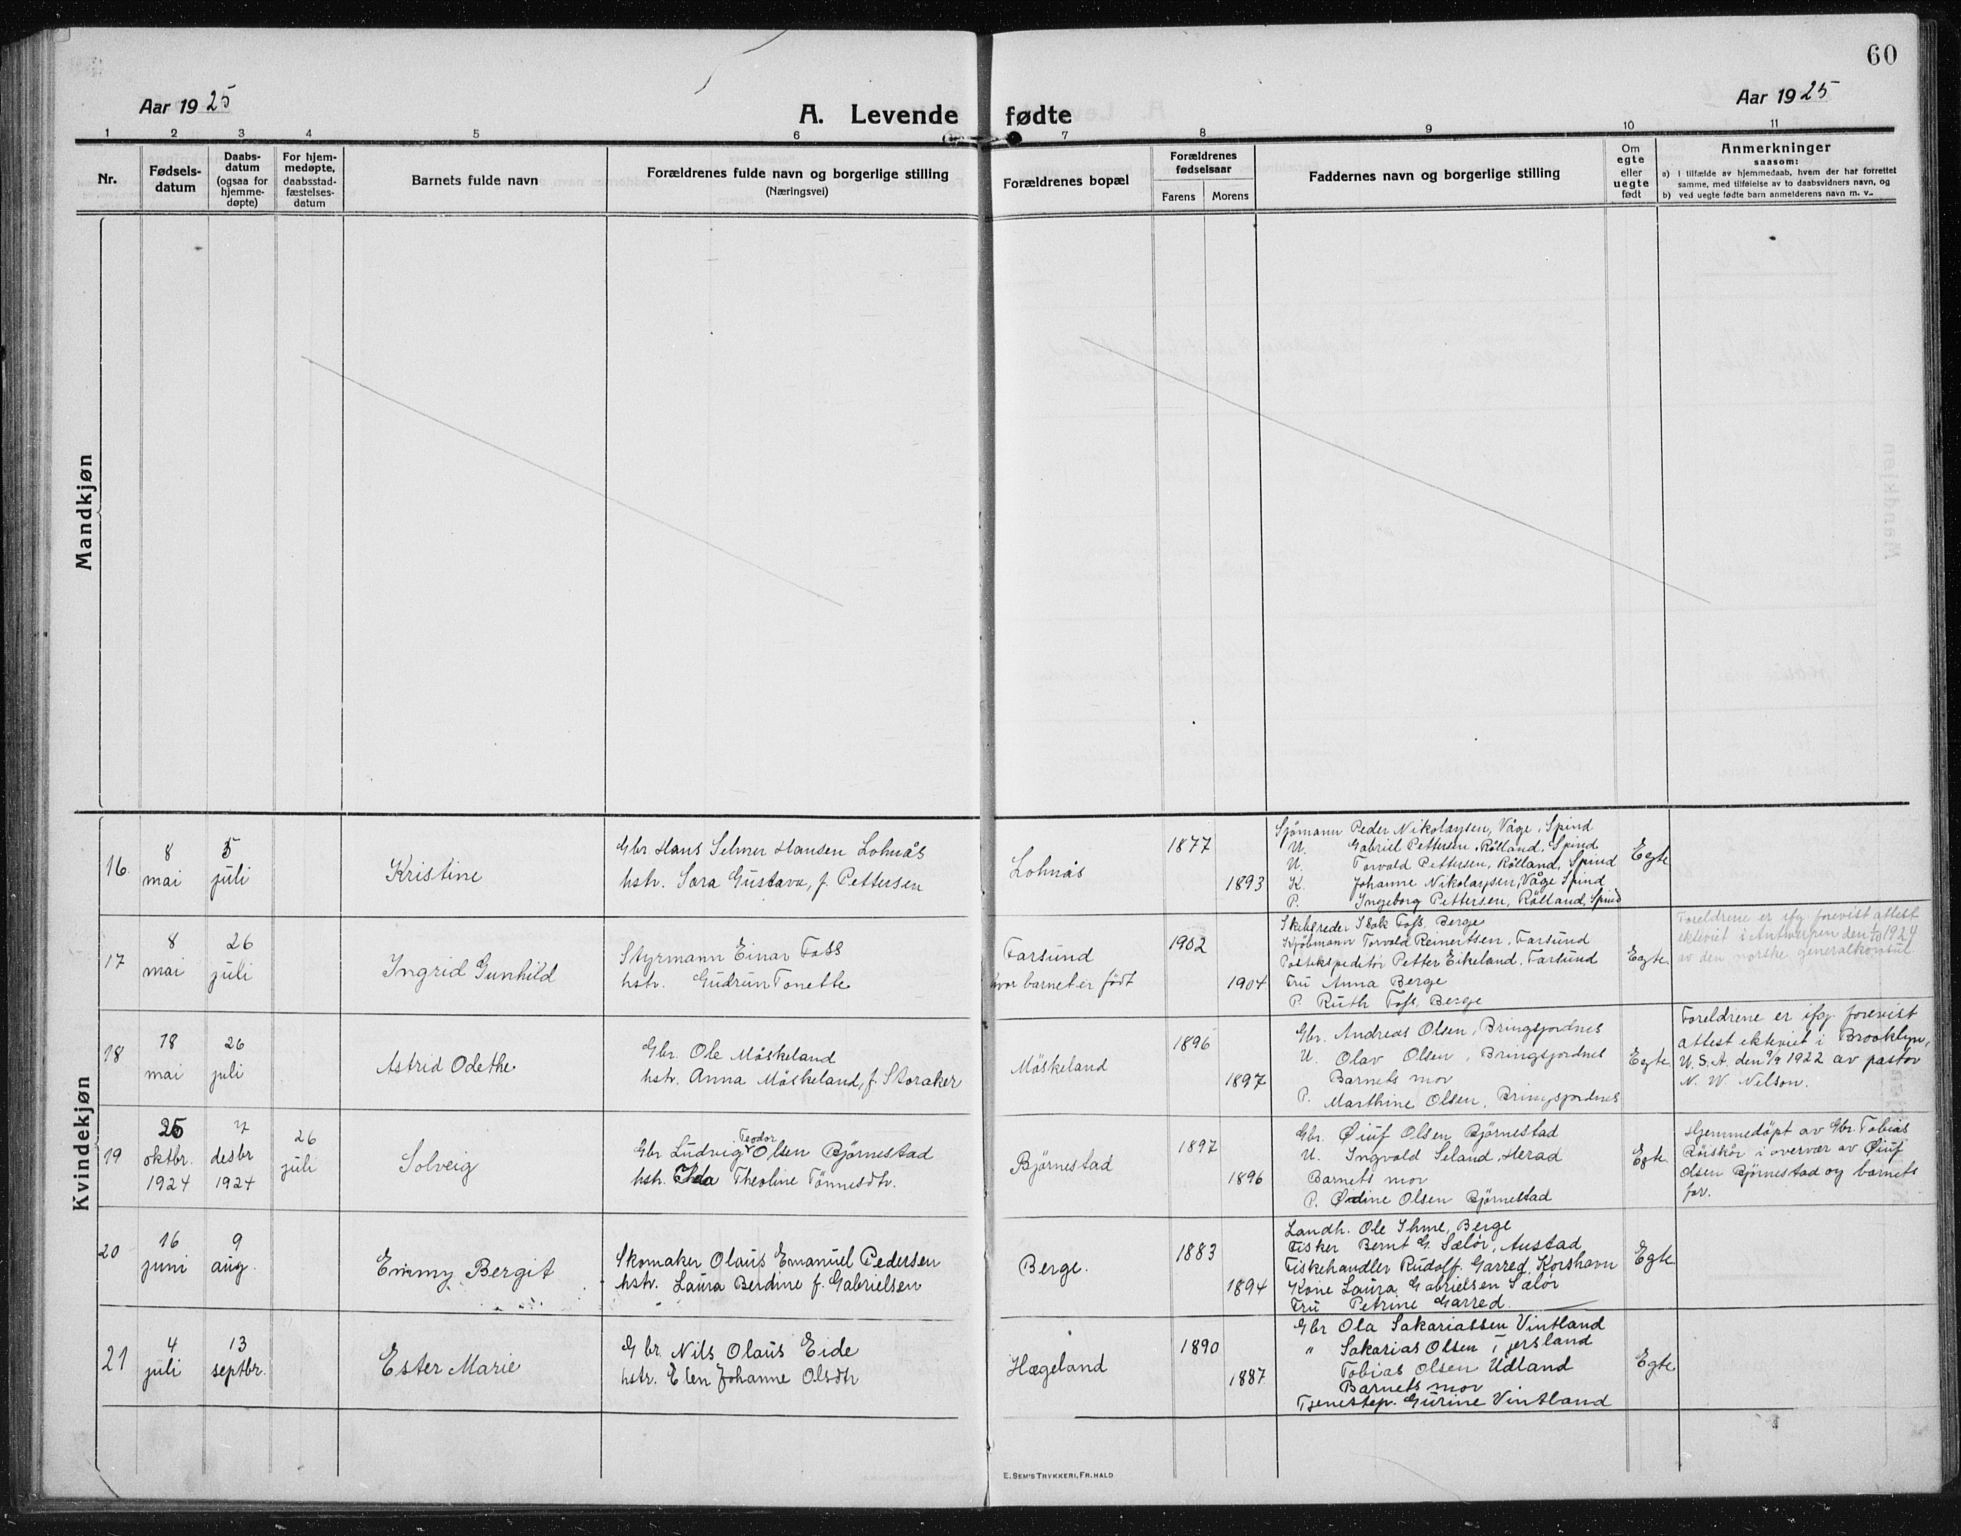 60
Aar 1925
A. Levende fødte
Aar 1925
1 2 3 4 5 6 7 8 9 10 11
Nr.
Fødsels-
datum
Daabs-
datum
(ogsaa for
hjemme-
døpte)
For hjem-
medøpte,
daabsstad-
fæstelses-
datum
Barnets fulde navn
Forældrenes fulde navn og borgerlige stilling
(Næringsvei)
Forældrenes bopæl
Forældrenes
fødselsaar
Farens Morens
Faddernes navn og borgerlige stilling
Om
egte
eller
uegte
født
Anmerkninger
saasom:
a) I tilfælde av hjemmedaab, hvem der har forrettet
samme, med tilføielse av to daabsvidners navn, og
b) ved uegte fødte barn anmelderens navn m. v.
Mandkjøn
Kvindekjøn
16
8
mai
5
juli
Kristine
Gbr Hans Selmer Hansen Lohnås
hstr. Sara Gustava, f. Pettersen
Lohnås
1877
1893
Sjømann Peder Nikolaysen, Våge, Spind
U. Gabriel Pettersen, Rålland, Spind
U. Torvald Pettersen, Rålland, Spind
K. Johanne Nikolaysen, Våge Spind
P. Ingeborg Pettersen, Rålland, Spind
Egte
17
8
mai
26
juli
Ingrid Gunhild
Styrmann Einar Foss
hstr. Gudrun Tonette
Farsund
hvor barnet er født
1902
1904
Skibsreder Isak Foss, Berge
Kjøbmann Torvald Reinertsen, Farsund
Postekspeditør Petter Eikeland, Farsund
Fru Anna Berge
P. Ruth Foss, Berge
Egte
Foreldrene er ifg forevist attest
ektviet i Antwerpen den 1/10 1924
av den norske generalkonsul
18
18
mai
26
juli
Astrid Odethe
Gbr. Ole Möskeland
hstr. Anna Möskeland, f. Storaker
Möskeland
1896
1897
Gbr. Andreas Olsen, Bringsjordnes
U. Olav Olsen, Bringsjordnes
Barnets mor
P. Marthine Olsen, Bringsjordnes
Egte
Foreldrene er ifg. forevist
attest ektviet i Brooklyn,
U. S. A. den 9/9 1922 av pastor
N. W. Nelson.
19
25
oktbr.
1924
7
desbr
1924
26
juli
Solveig
Gbr Ludvig Teodor Olsen Bjørnestad
hstr. Ida Theoline Tønnesdtr.
Bjørnestad
1897
1896
Gbr. Øiuf Olsen Bjørnestad
U. Ingvald Seland, Herad
Barnets mor
P. Ødine Olsen Bjørnestad
Egte
Hjemmedöpt av Gbr. Tobias
Rörskör i overvær av Øiuf
Olsen Bjørnestad og barnets
far.
20
16
juni
9
aug.
Emmy Bergit
Skomaker Olaus Emanuel Pedersen
hstr. Laura Berdine f. Gabrielsen
Berge.
1883
1894
Landh. Ole Ihme, Berge
Fisker Bernt G. Sælør, Austad
Fiskehandler Rudolf Garred, Korshavn
Kone Laura Gabrielsen Sælør
Fru Petrine Garred
Egte
21
4
juli
13
septbr.
Ester Marie
Gbr. Nils Olaus Eide
hstr. Elen Johanne Olsdtr
Hægeland
1890
1887
Gbr Ola Sakariassen Vintland
" Sakarias Olsen Tjersland
Tobias Olsen Udland
Barnets mor
Tjenestep. Gurine Vintland
Egte
E. SEM'S TRYKKERI, FR. HALD